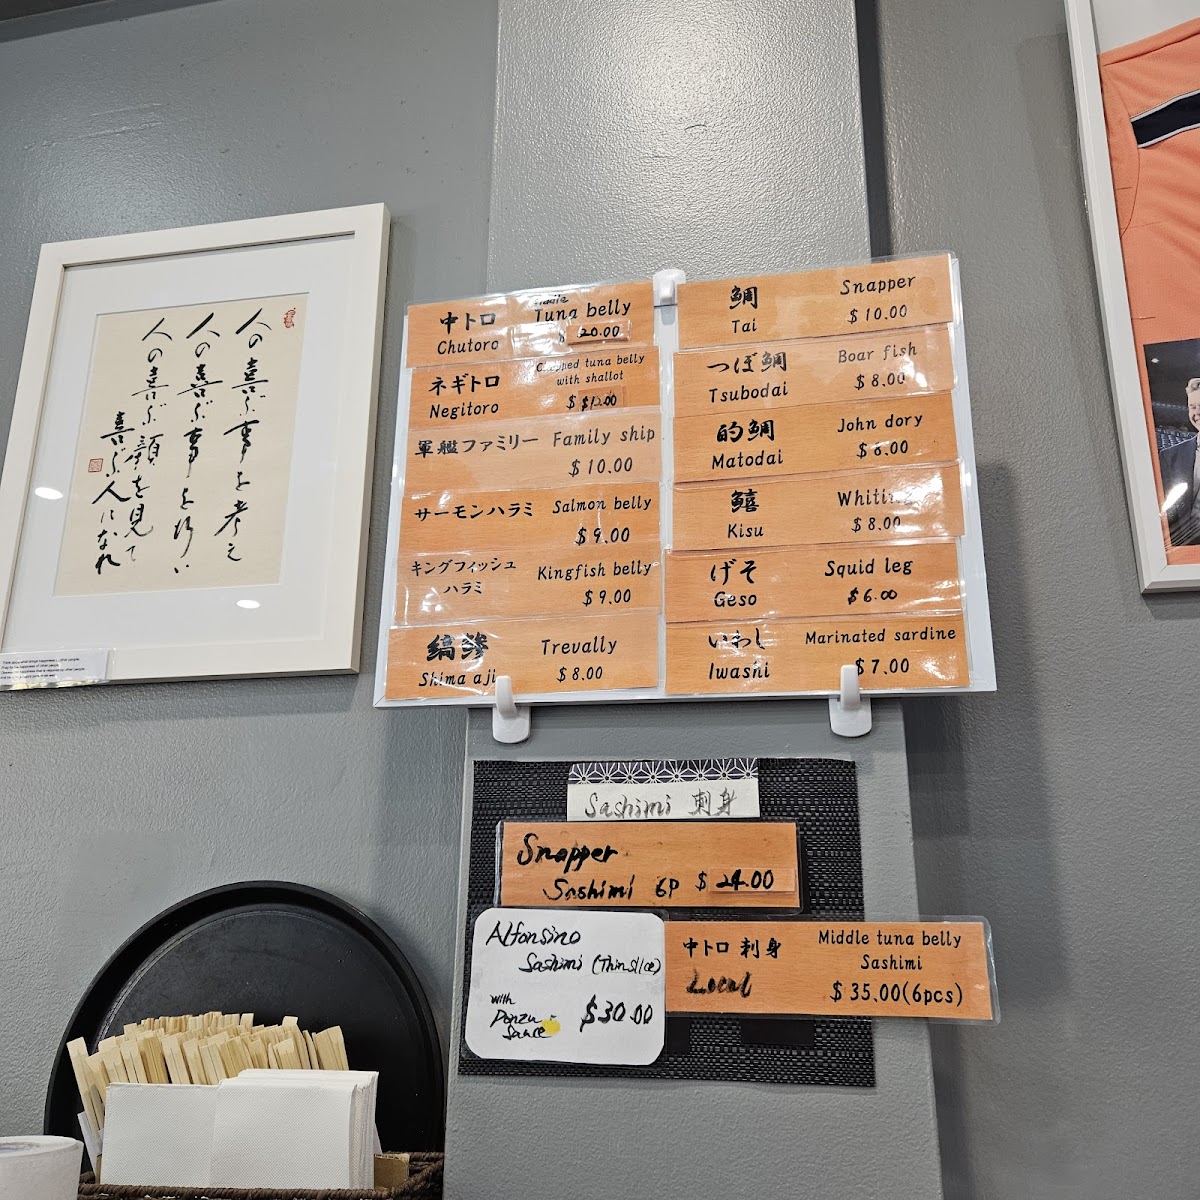 人の喜ぶ事を考え
人の喜ぶ事を行い
人の喜ぶ顔を見て
喜ぶ人になれ
中トロ
Chutoro
Middle
Tuna belly
$ 20.00
ネギトロ
Negitoro
Chopped tuna belly
with shallot
$ $12.00
軍艦ファミリー
Family ship
$10.00
サーモンハラミ
Salmon belly
$9.00
キングフィッシュ
ハラミ
Kingfish belly
$9.00
縞鯵
Shima aji
Trevally
$8.00
鯛
Tai
Snapper
$10.00
つぼ鯛
Tsubodai
Boar fish
$8.00
的鯛
Matodai
John dory
鱚
Kisu
Whiting
$8.00
げそ
Geso
Squid leg
$6.00
いわし
Iwashi
Marinated sardine
$7.00
Sashimi 刺身
Snapper
Sashimi 6P $ 24.00
Alfonsino
Sashimi (Thinslice)
with
Ponzu
Sauce
$30.00
中トロ 刺身
Local
Middle tuna belly
Sashimi
$35.00(6pcs)